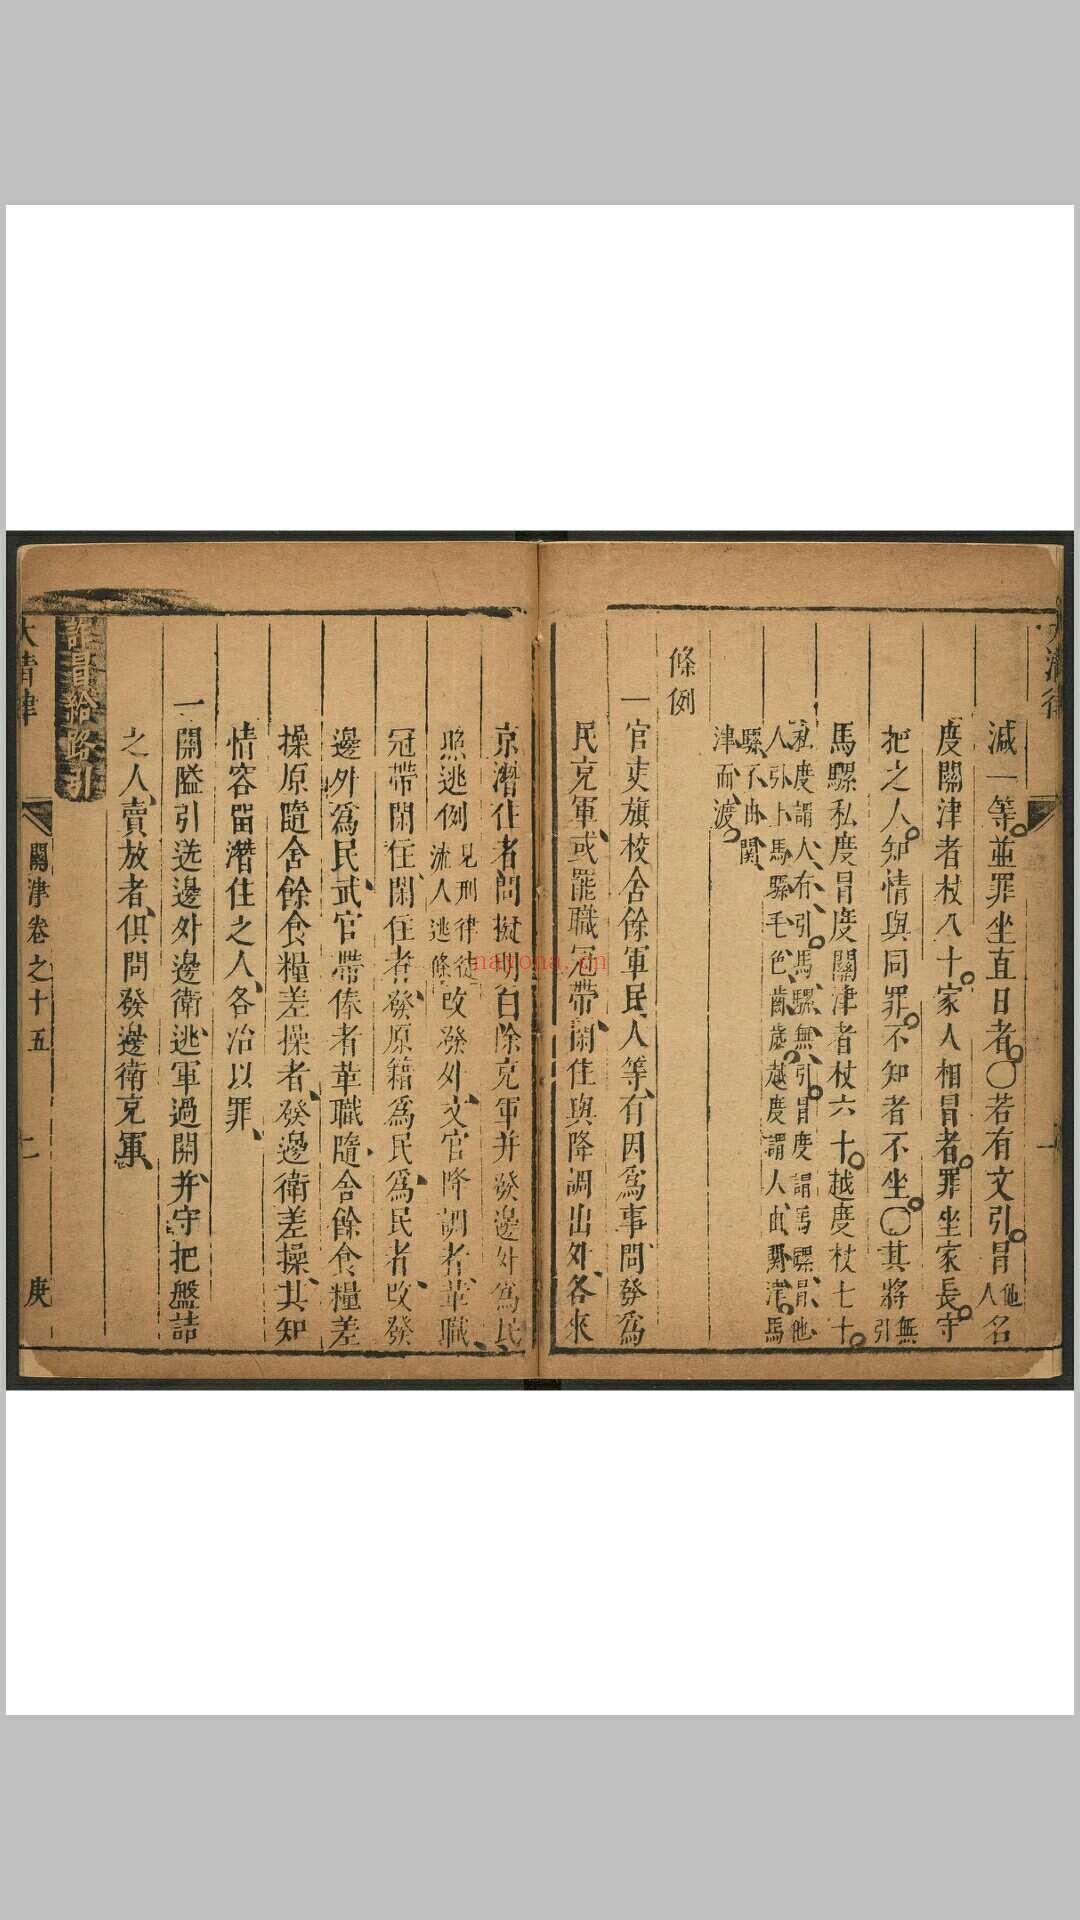 大清律
減一等。並罪坐直日者。〇若有文引。冒他人名
度關津者杖八十。家人相冒者。罪坐家長。守
把之人。知情與同罪。不知者不坐。〇其將無引
馬騾私度冒度關津者杖六十。越度杖七十。
私度謂人有引、馬騾無引。冒度謂馬騾冒他
人引上馬騾毛色齒歲。越度謂人由關津。馬
騾不由關
津而渡。
條例
一官吏旗校舍餘軍民人等、有因爲事問發爲
民充軍、或罷職冠帶閑住與降調出外、各來
京潛住者問擬明白除充軍并發邊外爲民
照逃例見刑律徒流人逃條改發外、文官降調者、革職
冠帶閑住、閑住者、發原籍爲民、爲民者、改發
邊外爲民、武官帶俸者革職隨舍餘食糧差
操原隨舍餘食糧差操者、發邊衛差操、其知
情容留潛住之人、各治以罪、
一關隘引送邊外邊衛逃軍過關、并守把盤詰
之人、賣放者、俱問發邊衛充軍、
詐冒給路引
大清律
關津卷之十五
二
庚
nayona.cn